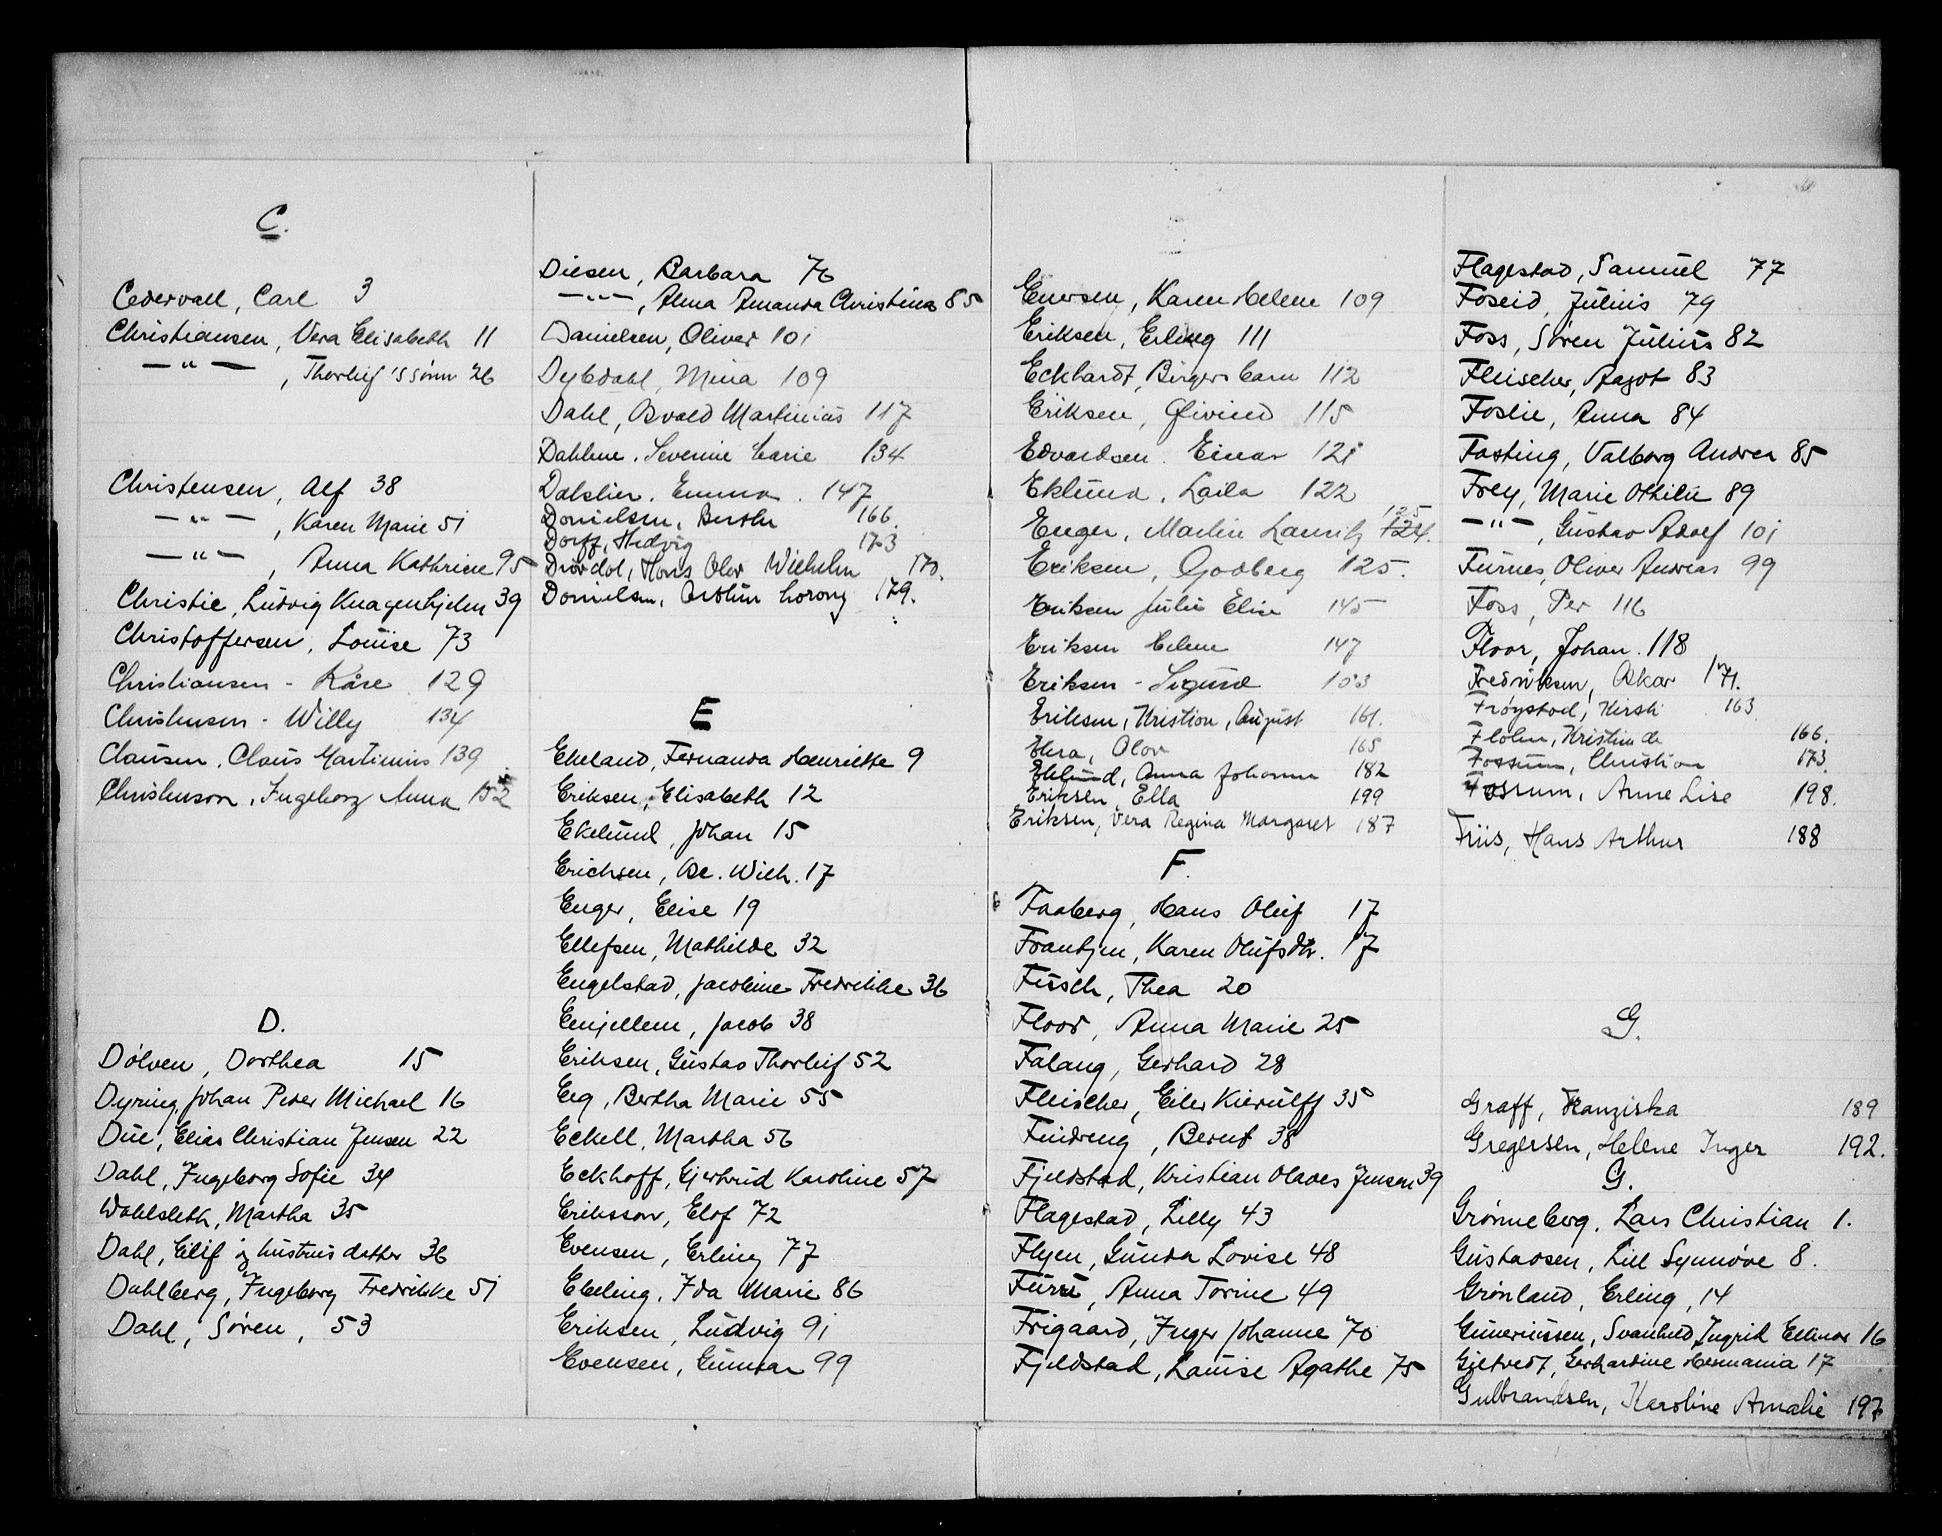 C.
Cedervall, Carl 3
Christiansen, Vera Elisabeth 11
— " — , Thorleif 's sønn 26
Christensen, Alf 38
— " — , Karen Marie 51
— " — , Anna Kathrine 95
Christie, Ludvig Knagenhjelm 39
Christoffersen, Louise 73
Christiansen - Kåre 129
Christensen - Willy 134
Clausen, Claus Martinius 139
Christenson, Ingeborg Anna 152
D.
Dölven, Dorthea 15
Dyring, Johan Peder Michael 16
Due, Elias Christian Jensen 22
Dahl, Ingeborg Sofie 34
Dahlsleth, Martha 35
Dahl, Eilif og hustrus datter 36
Dahlberg, Ingeborg Fredrikke 51
Dahl, Søren, 53
Diesen, Barbara 76
— " — , Anna Amanda Christina 85
Danielsen, Oliver 101
Dybdahl, Mina 109
Dahl, Osvald Martinius 117
Dahlene. Severine Marie 134
Dalslien. Emma. 147
Danielsen, Berthe 166.
Dorff, Hedvig 173
Drövdal, Hans Olav Wilhelm 170.
Danielsen, Arthur Lorang 179.
E
Ekeland, Fernanda Henriette 9
Eriksen, Elisabeth 12
Ekelund, Johan 15
Erichsen, Wilh. 17
Enger, Elise 19
Ellefsen, Mathilde 32
Engelstad, Jacobine Fredrikke 36
Engellem, Jacob 38
Eriksen, Gustav Thorleif 52
Eeg, Bertha Marie 55
Eckell, Martha 56
Eckhoff, Gjertrud Karoline 57
Eriksson, Elof 72
Evensen, Erling 77
Ebeling, Ida Marie 86
Eriksen, Ludvig 91
Evensen, Gunnar 99
Enersen, Karen Helene 109
Eriksen, Erling 111
Eckhardt, Birgers barn 112
Eriksen, Øivind 115
Edvardsen. Einar 121
Eklund, Laila 122
Enger, Martin Lauritz 124. 125
Eriksen, Godberg 125.
Eriksen Julie Elise 145
Eriksen Helene 147
Eriksen - Sigurd 153
Eriksen, Kristian, August 161.
Ekra, Olav 165
Eklund, Anna Johanne 182
Eriksen, Ella 199
Eriksen, Vera Regina Margaret 187
F.
Faaberg, Hans Oluf 17
Frantzen, Karen Olufsdtr. 17
Fusch, Thea 20
Flood, Anna Marie 25
Falang, Gerhard 28
Fleischer, Eiler Kierulff 35
Findreng, Bernt 38
Fjeldstad, Kristian Olaves Jensen 39
Flagestad, Lilly 43
Flyen, Gunda Lovise 48
Furre, Anna Torine 49
Frigaard, Inger Johanne 70
Fjeldstad, Louise Agathe 75
Flagestad, Samuel 77
Foseid, Julius 79
Foss, Søren Julius 82
Fleischer, Aagot 83
Foslie, Anna 84
Fasting, Valborg Andrea 85
Frey, Marie Othilie 89
— " — , Gustav Adolf 101
Furnes, Oliver Andreas 99
Foss, Per 116
Floor, Johan. 118
Fredriksen, Oskar 171.
Frøystad, Kirsti 163
Flolin, Kristine 166.
Fossum, Christian 173.
Fossum, Anne Lise 198.
Friis, Hans Arthur 188
G.
Graff, Franziska 189
Gregersen, Helene Inger 192.
G.
Grønneberg, Lars Christian 1.
Gustavsen, Lill Synnøve 8.
Grønland, Erling, 14
Guneriussen, Svanhild Ingrid Ellinor 16
Gjetvedt, Gerhardine Hermania 17
Gulbrandsen, Karoline Amalie 197